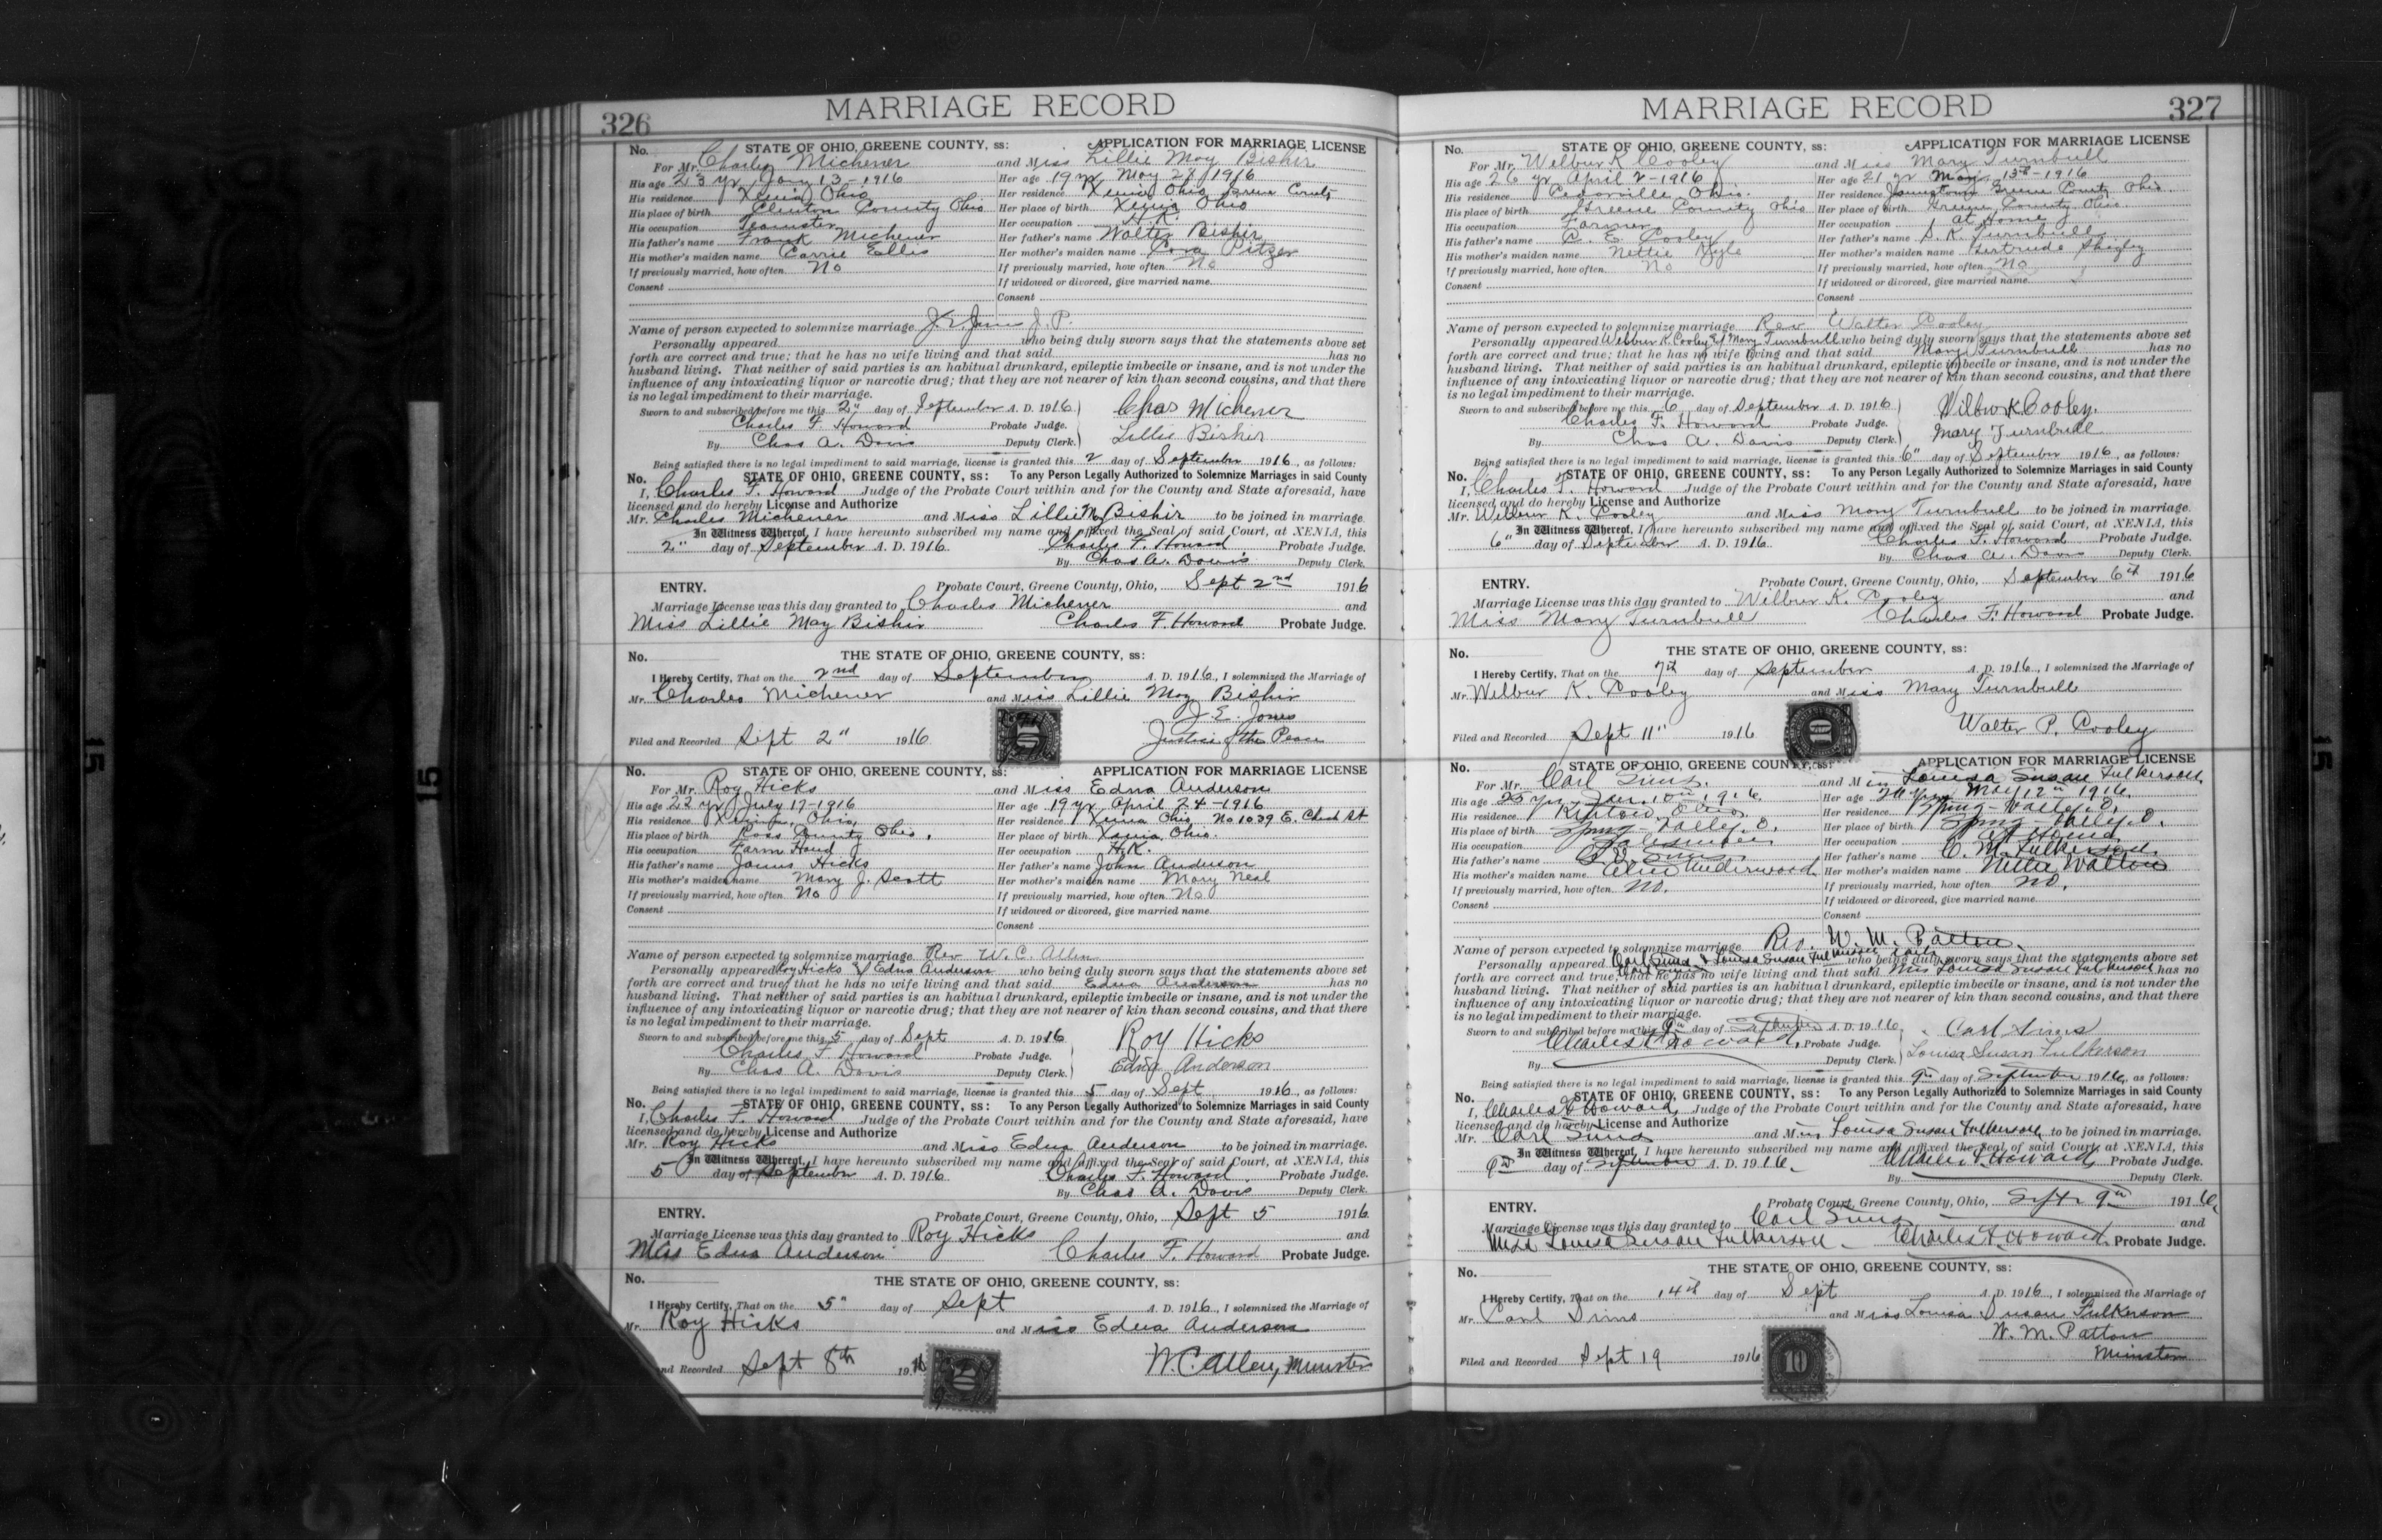 326 MARRIAGE RECORD
No. STATE OF OHIO, GREENE COUNTY, ss: APPLICATION FOR MARRIAGE LICENSE
For Mr. Charles Michener and Miss Lillie May Bishir
His age 23 yr Jany 13-1916 Her age 19 yr May 28 1916
His residence Xenia Ohio Her residence Xenia Ohio Greene County
His place of birth Clinton County Ohio Her place of birth Xenia Ohio
His occupation Teamster Her occupation H.K.
His father's name Frank Michener Her father's name Walter Bishir
His mother's maiden name Carrie Ellis Her mother's maiden name Cora Pitzer
If previously married, how often No If previously married, how often No
Consent If widowed or divorced, give married name
Consent
Name of person expected to solemnize marriage J. E. Jones J. P.
Personally appeared who being duly sworn says that the statements above set
forth are correct and true; that he has no wife living and that said has no
husband living. That neither of said parties is an habitual drunkard, epileptic imbecile or insane, and is not under the
influence of any intoxicating liquor or narcotic drug; that they are not nearer of kin than second cousins, and that there
is no legal impediment to their marriage.
Sworn to and subscribed before me this 2" day of September A. D. 1916 Chas Michener
Charles F. Howard Probate Judge.
By Chas A. Davis Deputy Clerk. Lillie Bishir
Being satisfied there is no legal impediment to said marriage, license is granted this 2 day of September 1916, as follows:
No. STATE OF OHIO, GREENE COUNTY, ss: To any Person Legally Authorized to Solemnize Marriages in said County
I, Charles F. Howard Judge of the Probate Court within and for the County and State aforesaid, have
licensed and do hereby License and Authorize
Mr. Charles Michener and Miss Lillie May Bishir to be joined in marriage.
In Witness Whereof, I have hereunto subscribed my name and affixed the Seal of said Court, at XENIA, this
2" day of September A. D. 1916 Charles F. Howard Probate Judge.
By Chas A. Davis Deputy Clerk.
ENTRY. Probate Court, Greene County, Ohio, Sept 2nd 1916
Marriage License was this day granted to Charles Michener and
Miss Lillie May Bishir Charles F. Howard Probate Judge.
No. THE STATE OF OHIO, GREENE COUNTY, ss:
I Hereby Certify, That on the 2nd day of September A. D. 1916, I solemnized the Marriage of
Mr. Charles Michener and Miss Lillie May Bishir
J E. Jones
Filed and Recorded Sept 2" 1916 Justice of the Peace
No. STATE OF OHIO, GREENE COUNTY, ss: APPLICATION FOR MARRIAGE LICENSE
For Mr. Roy Hicks and Miss Edna Anderson
His age 22 yr July 17-1916 Her age 19 yr April 24-1916
His residence Xenia, Ohio, Her residence Xenia Ohio No 1039 E. Church St
His place of birth Ross County Ohio. Her place of birth Xenia Ohio.
His occupation Farm Hand Her occupation H.K.
His father's name James Hicks Her father's name John Anderson
His mother's maiden name Mary J. Scott Her mother's maiden name Mary Neal
If previously married, how often No If previously married, how often No
Consent If widowed or divorced, give married name
Consent
Name of person expected to solemnize marriage Rev W. C. Allen
Personally appeared Roy Hicks & Edna Anderson who being duly sworn says that the statements above set
forth are correct and true; that he has no wife living and that said Edna Anderson has no
husband living. That neither of said parties is an habitual drunkard, epileptic imbecile or insane, and is not under the
influence of any intoxicating liquor or narcotic drug; that they are not nearer of kin than second cousins, and that there
is no legal impediment to their marriage.
Sworn to and subscribed before me this 5 day of Sept A. D. 1916 Roy Hicks
Charles F. Howard Probate Judge.
By Chas A. Davis Deputy Clerk. Edna Anderson
Being satisfied there is no legal impediment to said marriage, license is granted this 5 day of Sept 1916, as follows:
No. STATE OF OHIO, GREENE COUNTY, ss: To any Person Legally Authorized to Solemnize Marriages in said County
I, Charles F. Howard Judge of the Probate Court within and for the County and State aforesaid, have
licensed and do hereby License and Authorize
Mr. Roy Hicks and Miss Edna Anderson to be joined in marriage.
In Witness Whereof, I have hereunto subscribed my name and affixed the Seal of said Court, at XENIA, this
5 day of September A. D. 1916 Charles F. Howard Probate Judge.
By Chas A. Davis Deputy Clerk.
ENTRY. Probate Court, Greene County, Ohio, Sept 5 1916
Marriage License was this day granted to Roy Hicks and
Miss Edna Anderson Charles F. Howard Probate Judge.
No. THE STATE OF OHIO, GREENE COUNTY, ss:
I Hereby Certify, That on the 5" day of Sept A. D. 1916, I solemnized the Marriage of
Mr. Roy Hicks and Miss Edna Anderson
nd Recorded Sept 8th 1916 W. C. Allen, Minister
MARRIAGE RECORD 327
No. STATE OF OHIO, GREENE COUNTY, ss: APPLICATION FOR MARRIAGE LICENSE
For Mr. Wilbur K Cooley and Miss Mary Turnbull
His age 26 yr April 2-1916 Her age 21 yr May 13th-1916
His residence Cedarville Ohio. Her residence Jamestown Greene County Ohio.
His place of birth Greene County Ohio Her place of birth Greene County Ohio.
His occupation Farmer Her occupation at Home
His father's name C. E. Cooley Her father's name S. K. Turnbull
His mother's maiden name Nettie Kyle Her mother's maiden name Gertrude Shigley
If previously married, how often No If previously married, how often no
Consent If widowed or divorced, give married name
Consent
Name of person expected to solemnize marriage Rev Walter Cooley
Personally appeared Wilbur K. Cooley & Mary Turnbull who being duly sworn says that the statements above set
forth are correct and true; that he has no wife living and that said Mary Turnbull has no
husband living. That neither of said parties is an habitual drunkard, epileptic imbecile or insane, and is not under the
influence of any intoxicating liquor or narcotic drug; that they are not nearer of kin than second cousins, and that there
is no legal impediment to their marriage.
Sworn to and subscribed before me this 6 day of September A. D. 1916 Wilbur K Cooley.
Charles F. Howard Probate Judge.
By Chas A. Davis Deputy Clerk. Mary Turnbull
Being satisfied there is no legal impediment to said marriage, license is granted this 6" day of September 1916, as follows:
No. STATE OF OHIO, GREENE COUNTY, ss: To any Person Legally Authorized to Solemnize Marriages in said County
I, Charles F. Howard Judge of the Probate Court within and for the County and State aforesaid, have
licensed and do hereby License and Authorize
Mr. Wilbur K. Cooley and Miss Mary Turnbull to be joined in marriage.
In Witness Whereof, I have hereunto subscribed my name and affixed the Seal of said Court, at XENIA, this
6" day of September A. D. 1916 Charles F. Howard Probate Judge.
By Chas A. Davis Deputy Clerk.
ENTRY. Probate Court, Greene County, Ohio, September 6th 1916
Marriage License was this day granted to Wilbur K. Cooley and
Miss Mary Turnbull Charles F. Howard Probate Judge.
No. THE STATE OF OHIO, GREENE COUNTY, ss:
I Hereby Certify, That on the 7th day of September A. D. 1916, I solemnized the Marriage of
Mr. Wilbur K. Cooley and Miss Mary Turnbull
Filed and Recorded Sept 11" 1916 10 Walter P. Cooley
No. STATE OF OHIO, GREENE COUNTY, ss: APPLICATION FOR MARRIAGE LICENSE
For Mr. Carl Sims. and Miss Louisa Susan Fulkerson
His age yrs Jan. 10th 1916. Her age yrs May 12th 1916.
His residence Ohio Her residence Spring-Valley. O.
His place of birth Spring-Valley. O. Her place of birth Spring-Valley. O.
His occupation Salesman Her occupation At Home
His father's name Sims Her father's name C. M. Fulkerson.
His mother's maiden name Alice Underwood Her mother's maiden name Nettie Walton
If previously married, how often No. If previously married, how often No.
Consent If widowed or divorced, give married name
Consent
Name of person expected to solemnize marriage Rev. W. M. Patton.
Personally appeared Carl Sims & Louisa Susan Fulkerson who being duly sworn says that the statements above set
forth are correct and true; that he has no wife living and that said Miss Louisa Susan Fulkerson has no
husband living. That neither of said parties is an habitual drunkard, epileptic imbecile or insane, and is not under the
influence of any intoxicating liquor or narcotic drug; that they are not nearer of kin than second cousins, and that there
is no legal impediment to their marriage.
Sworn to and subscribed before me this 9th day of September A. D. 1916. Carl Sims
Charles F Howard, Probate Judge.
By Deputy Clerk. Louisa Susan Fulkerson
Being satisfied there is no legal impediment to said marriage, license is granted this 9th day of September 1916, as follows:
No. STATE OF OHIO, GREENE COUNTY, ss: To any Person Legally Authorized to Solemnize Marriages in said County
I, Charles F Howard, Judge of the Probate Court within and for the County and State aforesaid, have
licensed and do hereby License and Authorize
Mr. Carl Sims and Miss Louisa Susan Fulkerson to be joined in marriage.
In Witness Whereof, I have hereunto subscribed my name and affixed the Seal of said Court, at XENIA, this
9th day of September A. D. 1916. Charles F. Howard, Probate Judge.
By Deputy Clerk.
ENTRY. Probate Court, Greene County, Ohio, Sept 9th 1916.
Marriage License was this day granted to Carl Sims and
Miss Louisa Susan Fulkerson Charles F Howard. Probate Judge.
No. THE STATE OF OHIO, GREENE COUNTY, ss:
I Hereby Certify, That on the 14th day of Sept A. D. 1916, I solemnized the Marriage of
Mr. Carl Sims and Miss Louisa Susan Fulkerson
W. M. Patton
Filed and Recorded Sept 19 1916 10 Minister
15
15
15